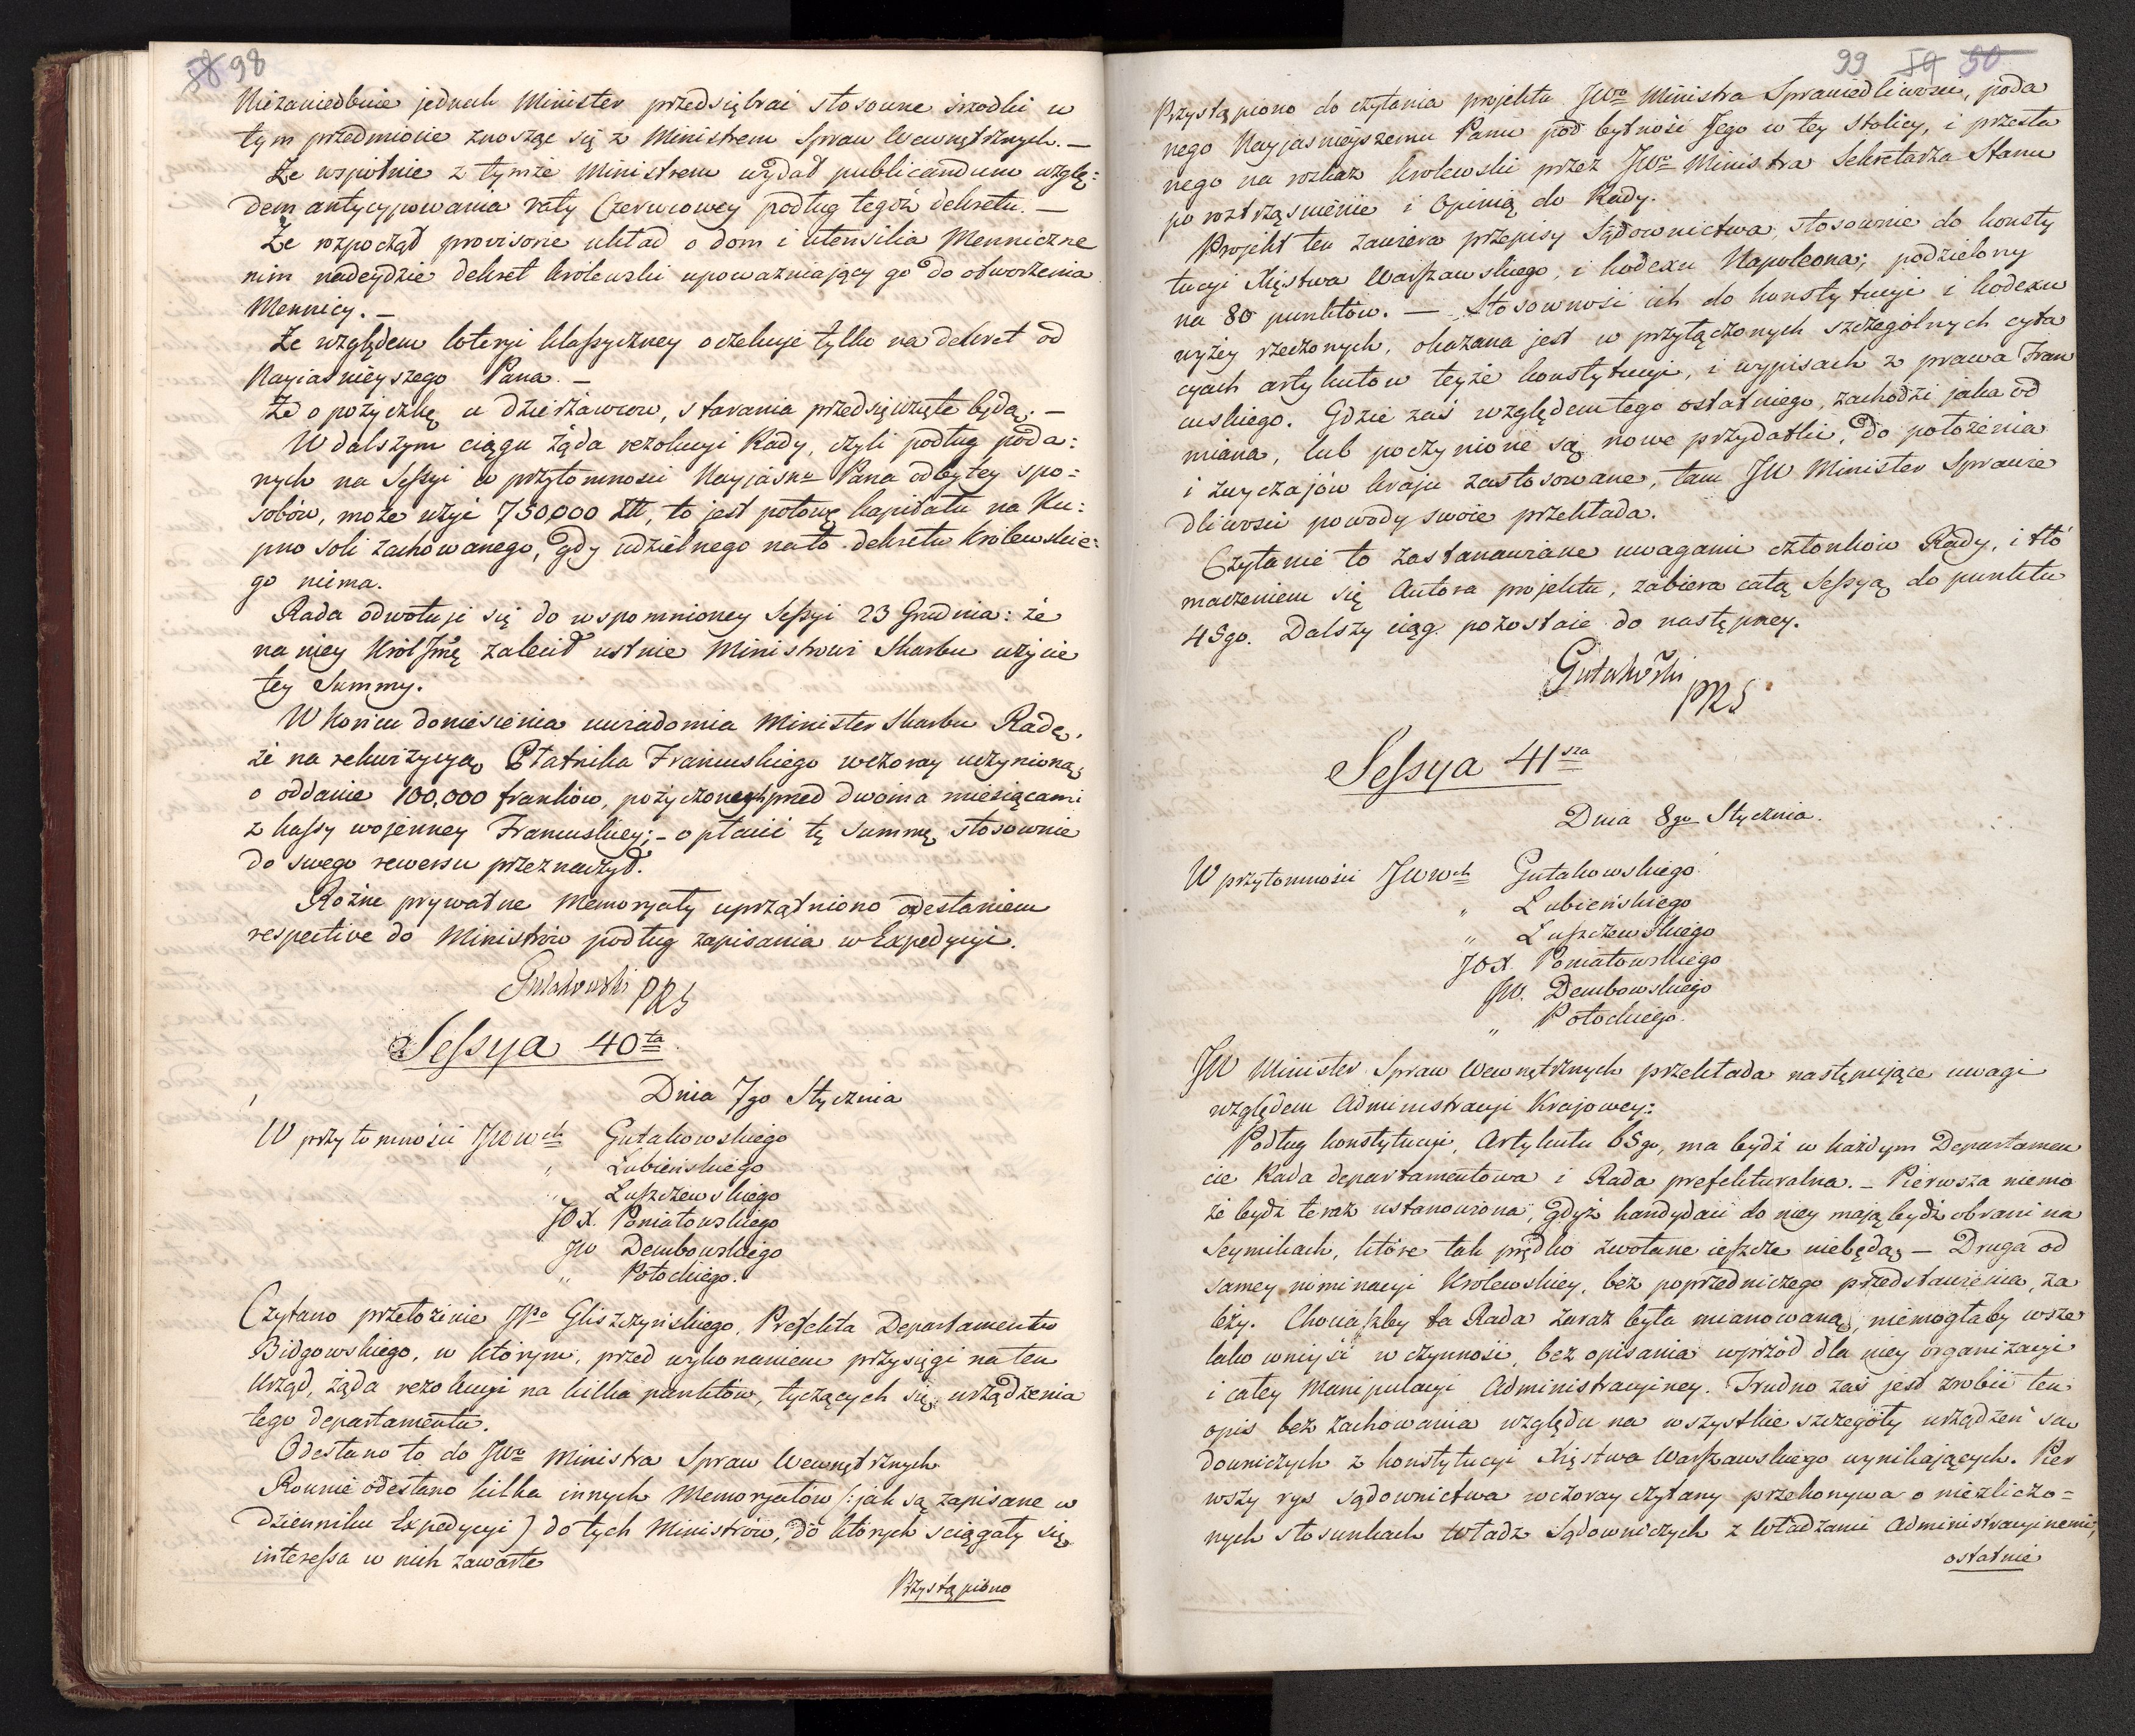 58 98
Niezaniedbuie jednak Minister przedsiębrać stosowne środki w
tym przedmiocie znosząc się z Ministrem Spraw Wewnętrznych. —
Że wspólnie z tymże Ministrem wydał publicandum wzglę:
dem antycypowania raty Czerwcowey podług tegoż dekretu. —
Że rozpoczął provisorie układ o dom i utensilia Mennicze
nim nadeydzie dekret królewski upoważniaiący go do otworzenia
Mennicy. —
Że względem loteryi klassyczney oczekuje tylko na dekret od
Nayiaśnieyszego Pana. —
Że o pożyczkę u dzierżawców, starania przedsięwzięte będą. —
W dalszym ciągu żąda rezolucyi Rady, czyli podług poda:
nych na Sessyi w przytomności Nayjaśno Pana odbytey spo=
sobów, może użyć 750,000 Złł, to jest połowę kapitału na Ku:
pno soli zachowanego, gdy udzielnego na to dekretu królewskie:
go niema.
Rada odwołuje się do wspomnioney Sessyi 23 Grudnia: że
na niey Król Jmć zalecił ustnie Ministrowi Skarbu użycie
tey Summy.
W końcu doniesienia uwiadomia Minister Skarbu Radę,
że na rekwizycyą Płatnika Francuskiego wczoray uczynioną
o oddanie 100,000 franków, pożyczonych przed dwoma miesiącami
z kassy wojenney Francuskiey; – opłacić tę Summę, stosownie
do swego rewersu przeznaczył.
Różne prywatne Memoryały uprzątniono odesłaniem
respective do Ministrów podług zapisania w Expedycyi.
Gutakowski PRS
Sessya 40ta
Dnia 7go Stycznia
W przytomności JWwch Gutakowskiego
" Lubieńskiego
" Łuszczewskiego
JOX. Poniatowskiego
JW Dembowskiego
" Potockiego.
Czytano przełożenie JPa Gliszczyńskiego, Prefekta Departamentu
Bidgowskiego, w którym, przed wykonaniem przysięgi na ten
Urząd, żąda rezolucyi na kilka punktów, tyczących się urządzenia
tego departamentu.
Odesłano to do JWo Ministra Spraw Wewnętrznych
Rownie odesłano kilka innych Memoryałów /: jak są zapisane w
dzienniku Expedycyi) do tych Ministrów, do których ściągały się
interessa w nich zawarte
Przystąpiono
99 59 50
Przystąpiono do czytania projektu JWo Ministra Sprawiedliwości, poda
nego Nayjaśnieyszemu Panu pod bytność Jego w tey stolicy, i przesła
nego na rozkaz królewski przez JWo Ministra Sekretarza Stanu
po roztrząśnienie i Opinią do Rady.
Projekt ten zawiera przepisy Sądownictwa, stosownie do konsty
tucyi Xięstwa Warszawskiego, i kodexu Napoleona; podzielony
na 80 punktów. — Stosowność ich do konstytucyi i kodexu
wyżey rzeczonych, okazana jest w przyłączonych szczególnych cyta
cyach artykułów teyże konstytucyi, i wypisach z prawa Fran
cuskiego. Gdzie zaś względem tego ostatniego, zachodzi jaka od
miana, lub poczynione są nowe przydatki, do położenia
i zwyczajów kraju zastosowane, tam JW Minister Sprawie
dliwości powody swoie przekłada.
Czytanie to zastanawiane uwagami członków Rady, i tłó
maczeniem się Autora projektu, zabiera całą Sessyą do punktu
45go. Dalszy ciąg pozostaie do następney.
Gutakowski
PRS
Sessya 41sza
Dnia 8go Stycznia.
W przytomności JWwch Gutakowskiego
" Lubieńskiego
" Łuszczewskiego
JOX. Poniatowskiego
JW. Dembowskiego
" Potockiego.
JW Minister Spraw Wewnętrznych przekłada następujące uwagi
względem Administracyi Krajowey:
Podług konstytucyi, Artykułu 65go, ma bydź w każdym Departamen
cie Rada departamentowa i Rada prefekturalna. – Pierwsza niemo
że bydź teraz ustanowiona, gdyż kandydaci do niey mają bydź obrani na
Seymikach, które tak prędko zwołane ieszcze niebędą, – Druga od
samey nominacyi Królewskiey, bez poprzedniczego przedstawienia, za
leży. Chociażby ta Rada zaraz była mianowaną, niemogłaby wsze
lako wniyść w czynność, bez opisania wprzód dla niey organizacyi
i całey Manipulacyi Administracyiney. Trudno zaś jest zrobić ten
opis bez zachowania względu na wszystkie szczegóły urządzeń są
downiczych z konstytucyi Xięstwa Warszawskiego wynikających. Pier
wszy rys sądownictwa wczoray czytany przekonywa o niezliczo=
nych stosunkach Władz Sądowniczych z Władzami Administracyinemi;
ostatnie